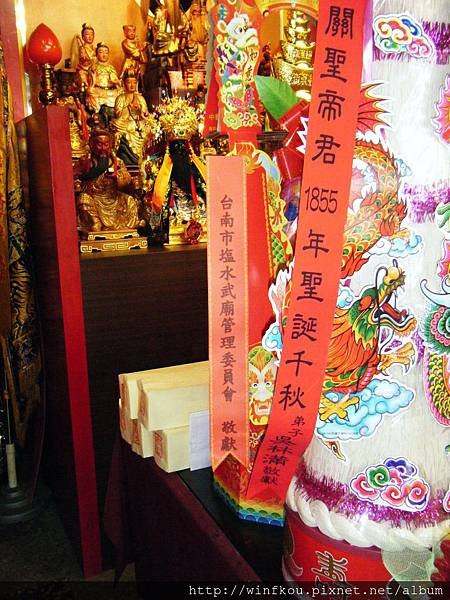 關聖帝君1855年聖誕千秋
弟子吳林滿敬獻
台南市塩水武廟管理委員會 敬獻
壽
http://winfkou.pixnet.net/album